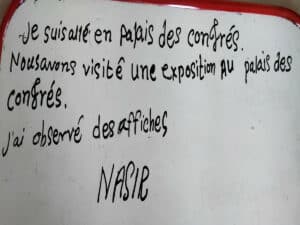 Je suis allé en palais des congrés.
Nous avons visité une exposition AU palais des
congrés.
J'ai observé des affiches
NASIR